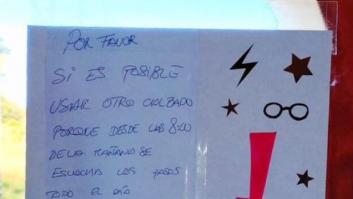 POR FAVOR
SI ES POSIBLE
USAR OTRO CALZADO
PORQUE DESDE LAS 8:00
DE LA MAÑANA SE
ESCUCHA LOS PASOS
TODO EL DÍA